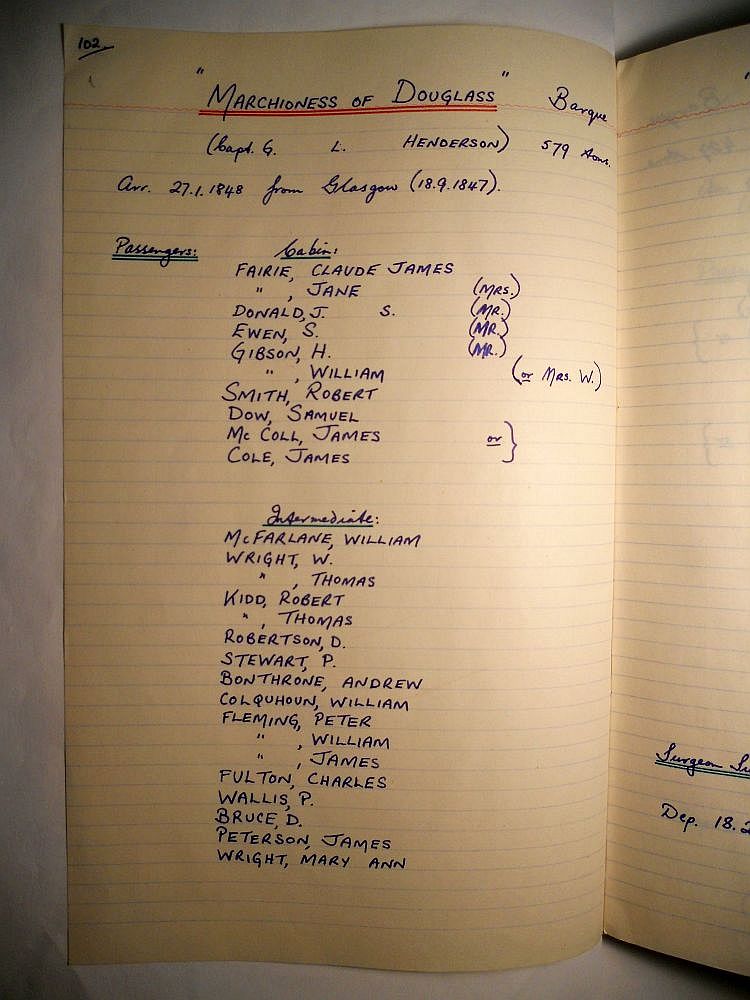 102.
"MARCHIONESS OF DOUGLASS" Barque
(Capt. G. L. HENDERSON) 579 tons.
Arr. 27.1.1848 from Glasgow (18.9.1847).
Passengers: Cabin:
FAIRIE, CLAUDE JAMES
" , JANE (MRS.)
DONALD, J. S. (MR.)
EWEN, S. (MR.)
GIBSON, H. (MR.)
" , WILLIAM (or MRS. W.)
SMITH, ROBERT
DOW, SAMUEL
Mc COLL, JAMES or }
COLE, JAMES
Intermediate:
McFARLANE, WILLIAM
WRIGHT, W.
" , THOMAS
KIDD, ROBERT
" , THOMAS
ROBERTSON, D.
STEWART, P.
BONTHRONE, ANDREW
COLQUHOUN, WILLIAM
FLEMING, PETER
" , WILLIAM
" , JAMES
FULTON, CHARLES
WALLIS, P.
BRUCE, D.
PETERSON, JAMES
WRIGHT, MARY ANN
Surgeon
Dep. 18.2